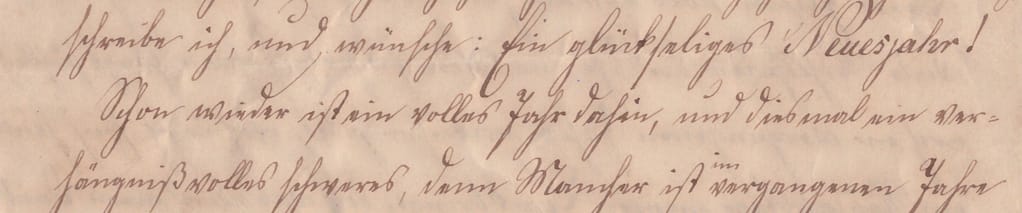 schreibe ich, und wünsche: Ein glückseliges Neuesjahr!
Schon wieder ist ein volles Jahr dahin, und diesmal ein ver=
hängnißvolles schweres, denn Mancher ist im vergangenen Jahre